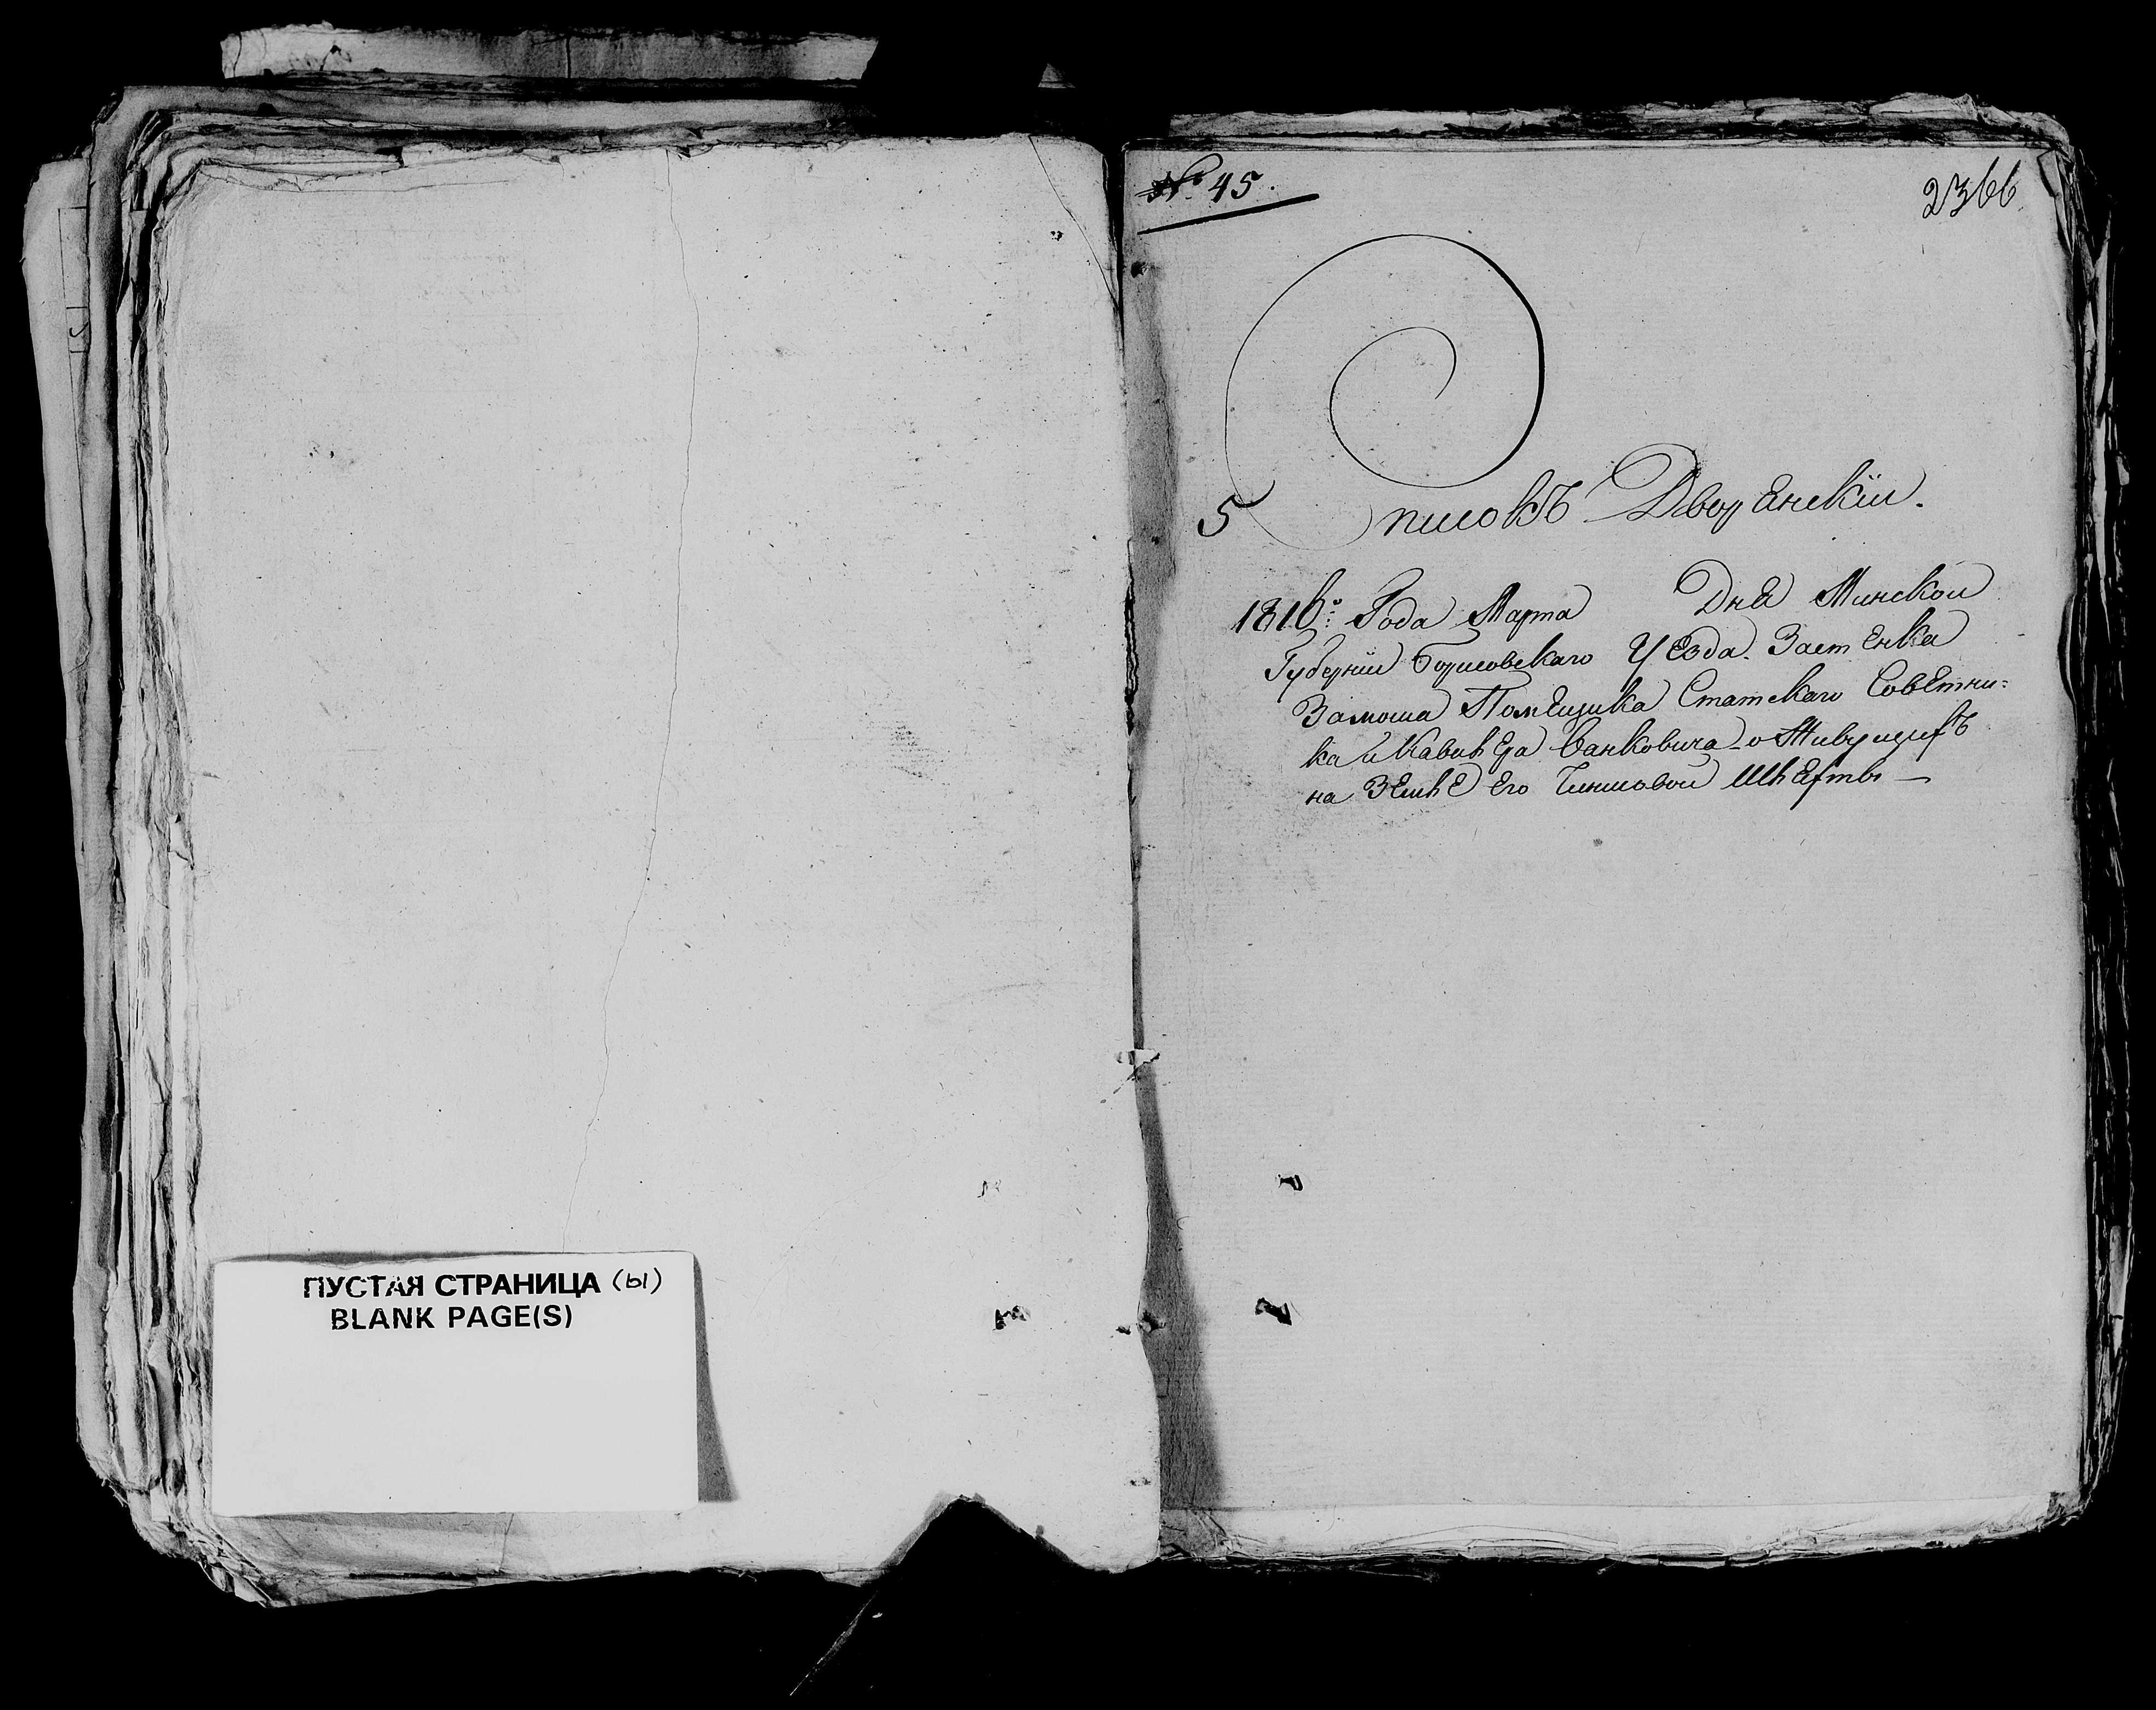 № 45.
2366
5 Списокъ Дворянскіи.
1816го Года Марта Дня Минскои
Губерніи Борисовскаго Уезда. Застенка
Замоша Помещика Статскаго Советни=
ка и Кавалера Ванковича о Живущихъ
на Земле Его Чиншовои Шляхты —
ПУСТАЯ СТРАНИЦА (ы)
BLANK PAGE(S)